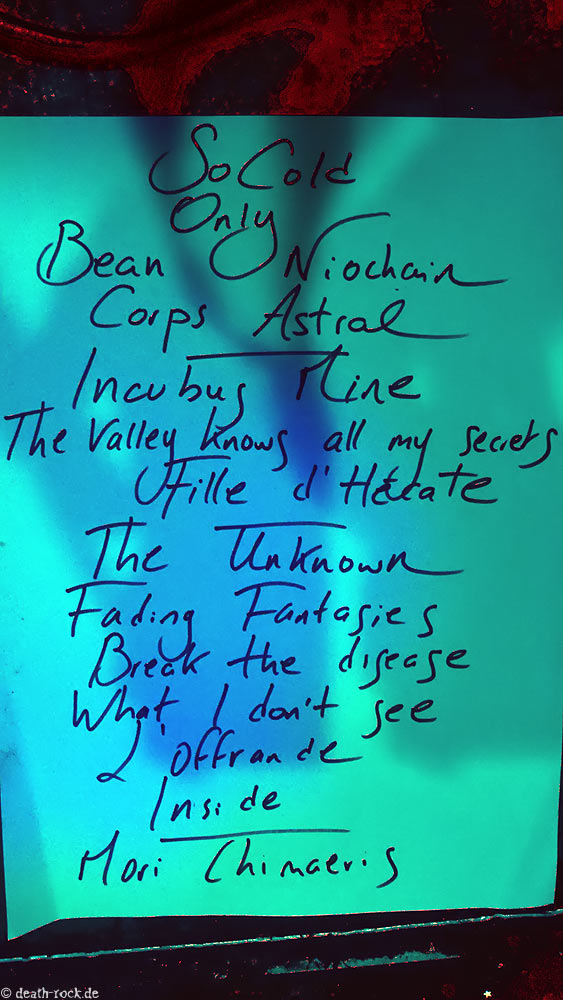 So Cold
Only
Bean Niochain
Corps Astral
Incubus Mine
The Valley knows all my secrets
Fille d'Hécate
The Unknown
Fading Fantasies
Break the disease
What I don't see
L'offrande
Inside
Mori Chimaeris
© death-rock.de